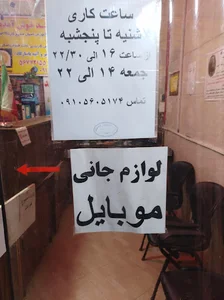 ساعت کاری
شنبه تا پنجشنبه
از ساعت ۱۶ الی ۲۲/۳۰
جمعه ۱۴ الی ۲۲
تماس ۰۹۱۰۵۶۰۵۱۷۴
لوازم جانی
موبایل